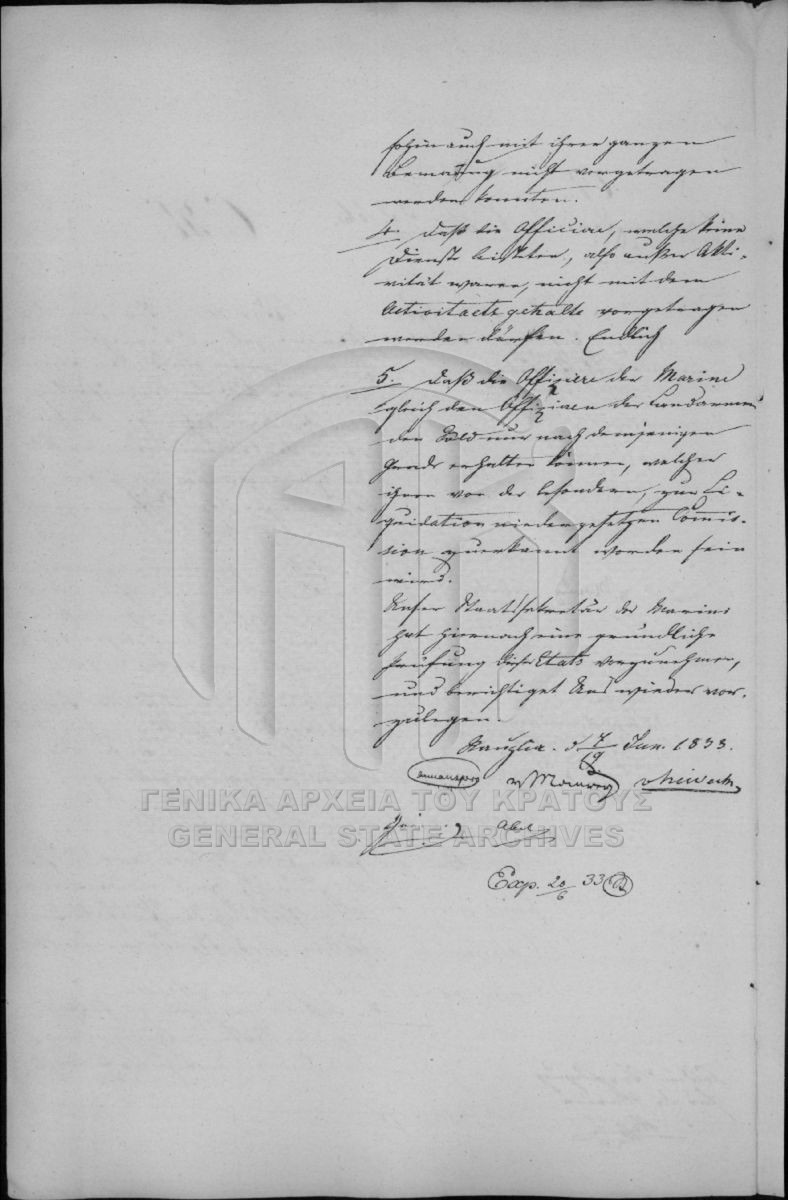 sohin auch mit ihrer ganzen
Bemannung nicht vorgetragen
werden konnten.
4. Daß die Officiere, welche keine
Dienste leisteten, also außer Akti-
vität waren, nicht mit dem
Activitaetsgehalte vorgetragen
werden dürfen. Endlich
5. Daß die Offiziere der Marine
gleich den Offizieren der Landarmee
den Sold nur nach demjenigen
Grade erhalten können, welcher
ihnen von der besondern, zur Li-
quidation niedergesetzten Commis-
sion zuerkannt worden sein
wird.
Unser Staatssekretär der Marine
hat hiernach eine gründliche
Prüfung dieses Etats vorzunehmen,
und berichtiget Uns wieder vor-
zulegen.
Nauplia. d 7/19 Jun. 1833.
Armansperg v Maurer v Heideck
Abel
Exp. 20/6 33
ΓΕΝΙΚΑ ΑΡΧΕΙΑ ΤΟΥ ΚΡΑΤΟΥΣ
GENERAL STATE ARCHIVES